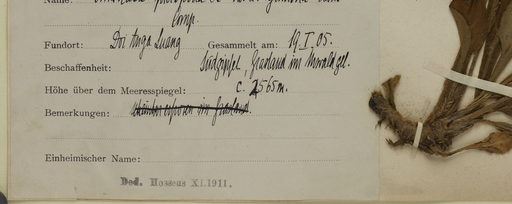 Name:
Comp.
Fundort: Doi Anga Luang Gesammelt am: 19.I.05.
Beschaffenheit: Südgipfel, Grasland im Urwaldgel.
Höhe über dem Meeresspiegel: c. 2565m.
Bemerkungen: im Grasland.
Einheimischer Name:
Ded. Hosseus XI.1911.